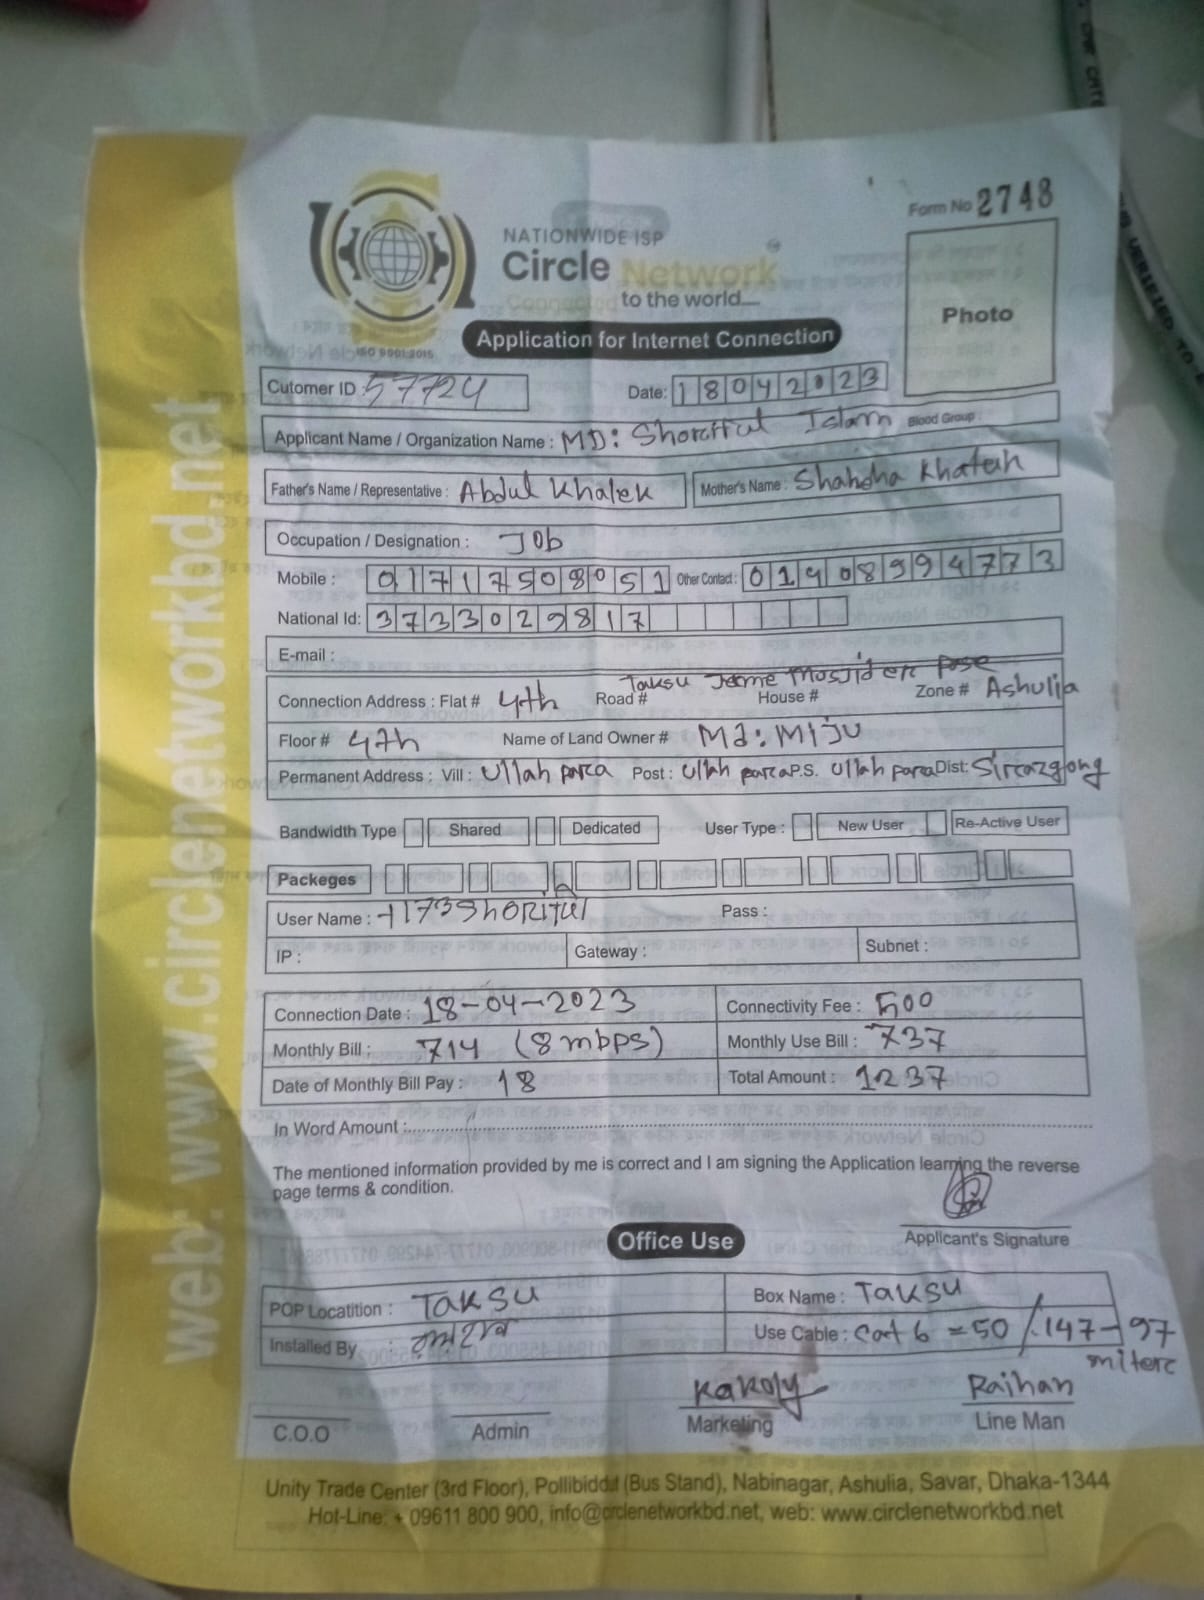 Form No 2748
NATIONWIDE ISP
Circle Network
Connected to the world...
ISO 9001:2015
Application for Internet Connection
Photo
Cutomer ID : 57724 Date: 18042023
Applicant Name / Organization Name : MD: Shoriful Islam Blood Group :
Father's Name / Representative : Abdul Khalek Mother's Name : Khatun
Occupation / Designation : Job
Mobile : 01717508051 Other Contact : 01408994773
National Id: 3733029817
E-mail :
Taksu Jame Mosjid er Pase
Connection Address : Flat # 4th Road # House # Zone # Ashulia
Floor # 4th Name of Land Owner # Md: Miju
Permanent Address : Vill : Ullah para Post : Ullah para P.S. Ullah para Dist: Sirazgong
Bandwidth Type Shared Dedicated User Type : New User Re-Active User
Packeges
User Name : Pass :
IP : Gateway : Subnet :
Connection Date : 18-04-2023 Connectivity Fee : 500
Monthly Bill : 714 (8 mbps) Monthly Use Bill : 737
Date of Monthly Bill Pay : 18 Total Amount : 1237
In Word Amount :
The mentioned information provided by me is correct and I am signing the Application learning the reverse
page terms & condition.
Applicant's Signature
Office Use
POP Locatition : Taksu Box Name : Taksu
Installed By Use Cable : Cat 6 = 50 / 147-97
miter
Kakoly Raihan
C.O.O Admin Marketing Line Man
Unity Trade Center (3rd Floor), Pollibiddut (Bus Stand), Nabinagar, Ashulia, Savar, Dhaka-1344
Hot-Line: + 09611 800 900, info@circlenetworkbd.net, web: www.circlenetworkbd.net
web: www.circlenetworkbd.net
VERIFIED TO